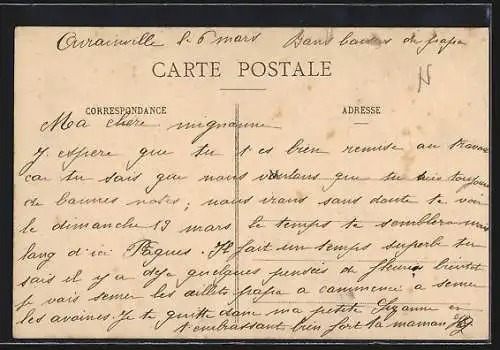 Avrainville le 6 mars Bons baisers de papa
CARTE POSTALE
CORRESPONDANCE
ADRESSE
Ma chère mignonne
J espère que tu t es bien remise au travail
car tu sais que nous voulons que tu aies toujours
de bonnes notes; nous irons sans doute te voir
le dimanche 19 mars le temps te semblera moins
long d'ici Pâques. Il fait un temps superbe tu
sais il y a deja quelques pensées de fleuries bientot
je vais semer les œillets papa a commencé a semer
les avoines. Je te quitte donc ma petite Suzanne en
t embrassant bien fort ta maman